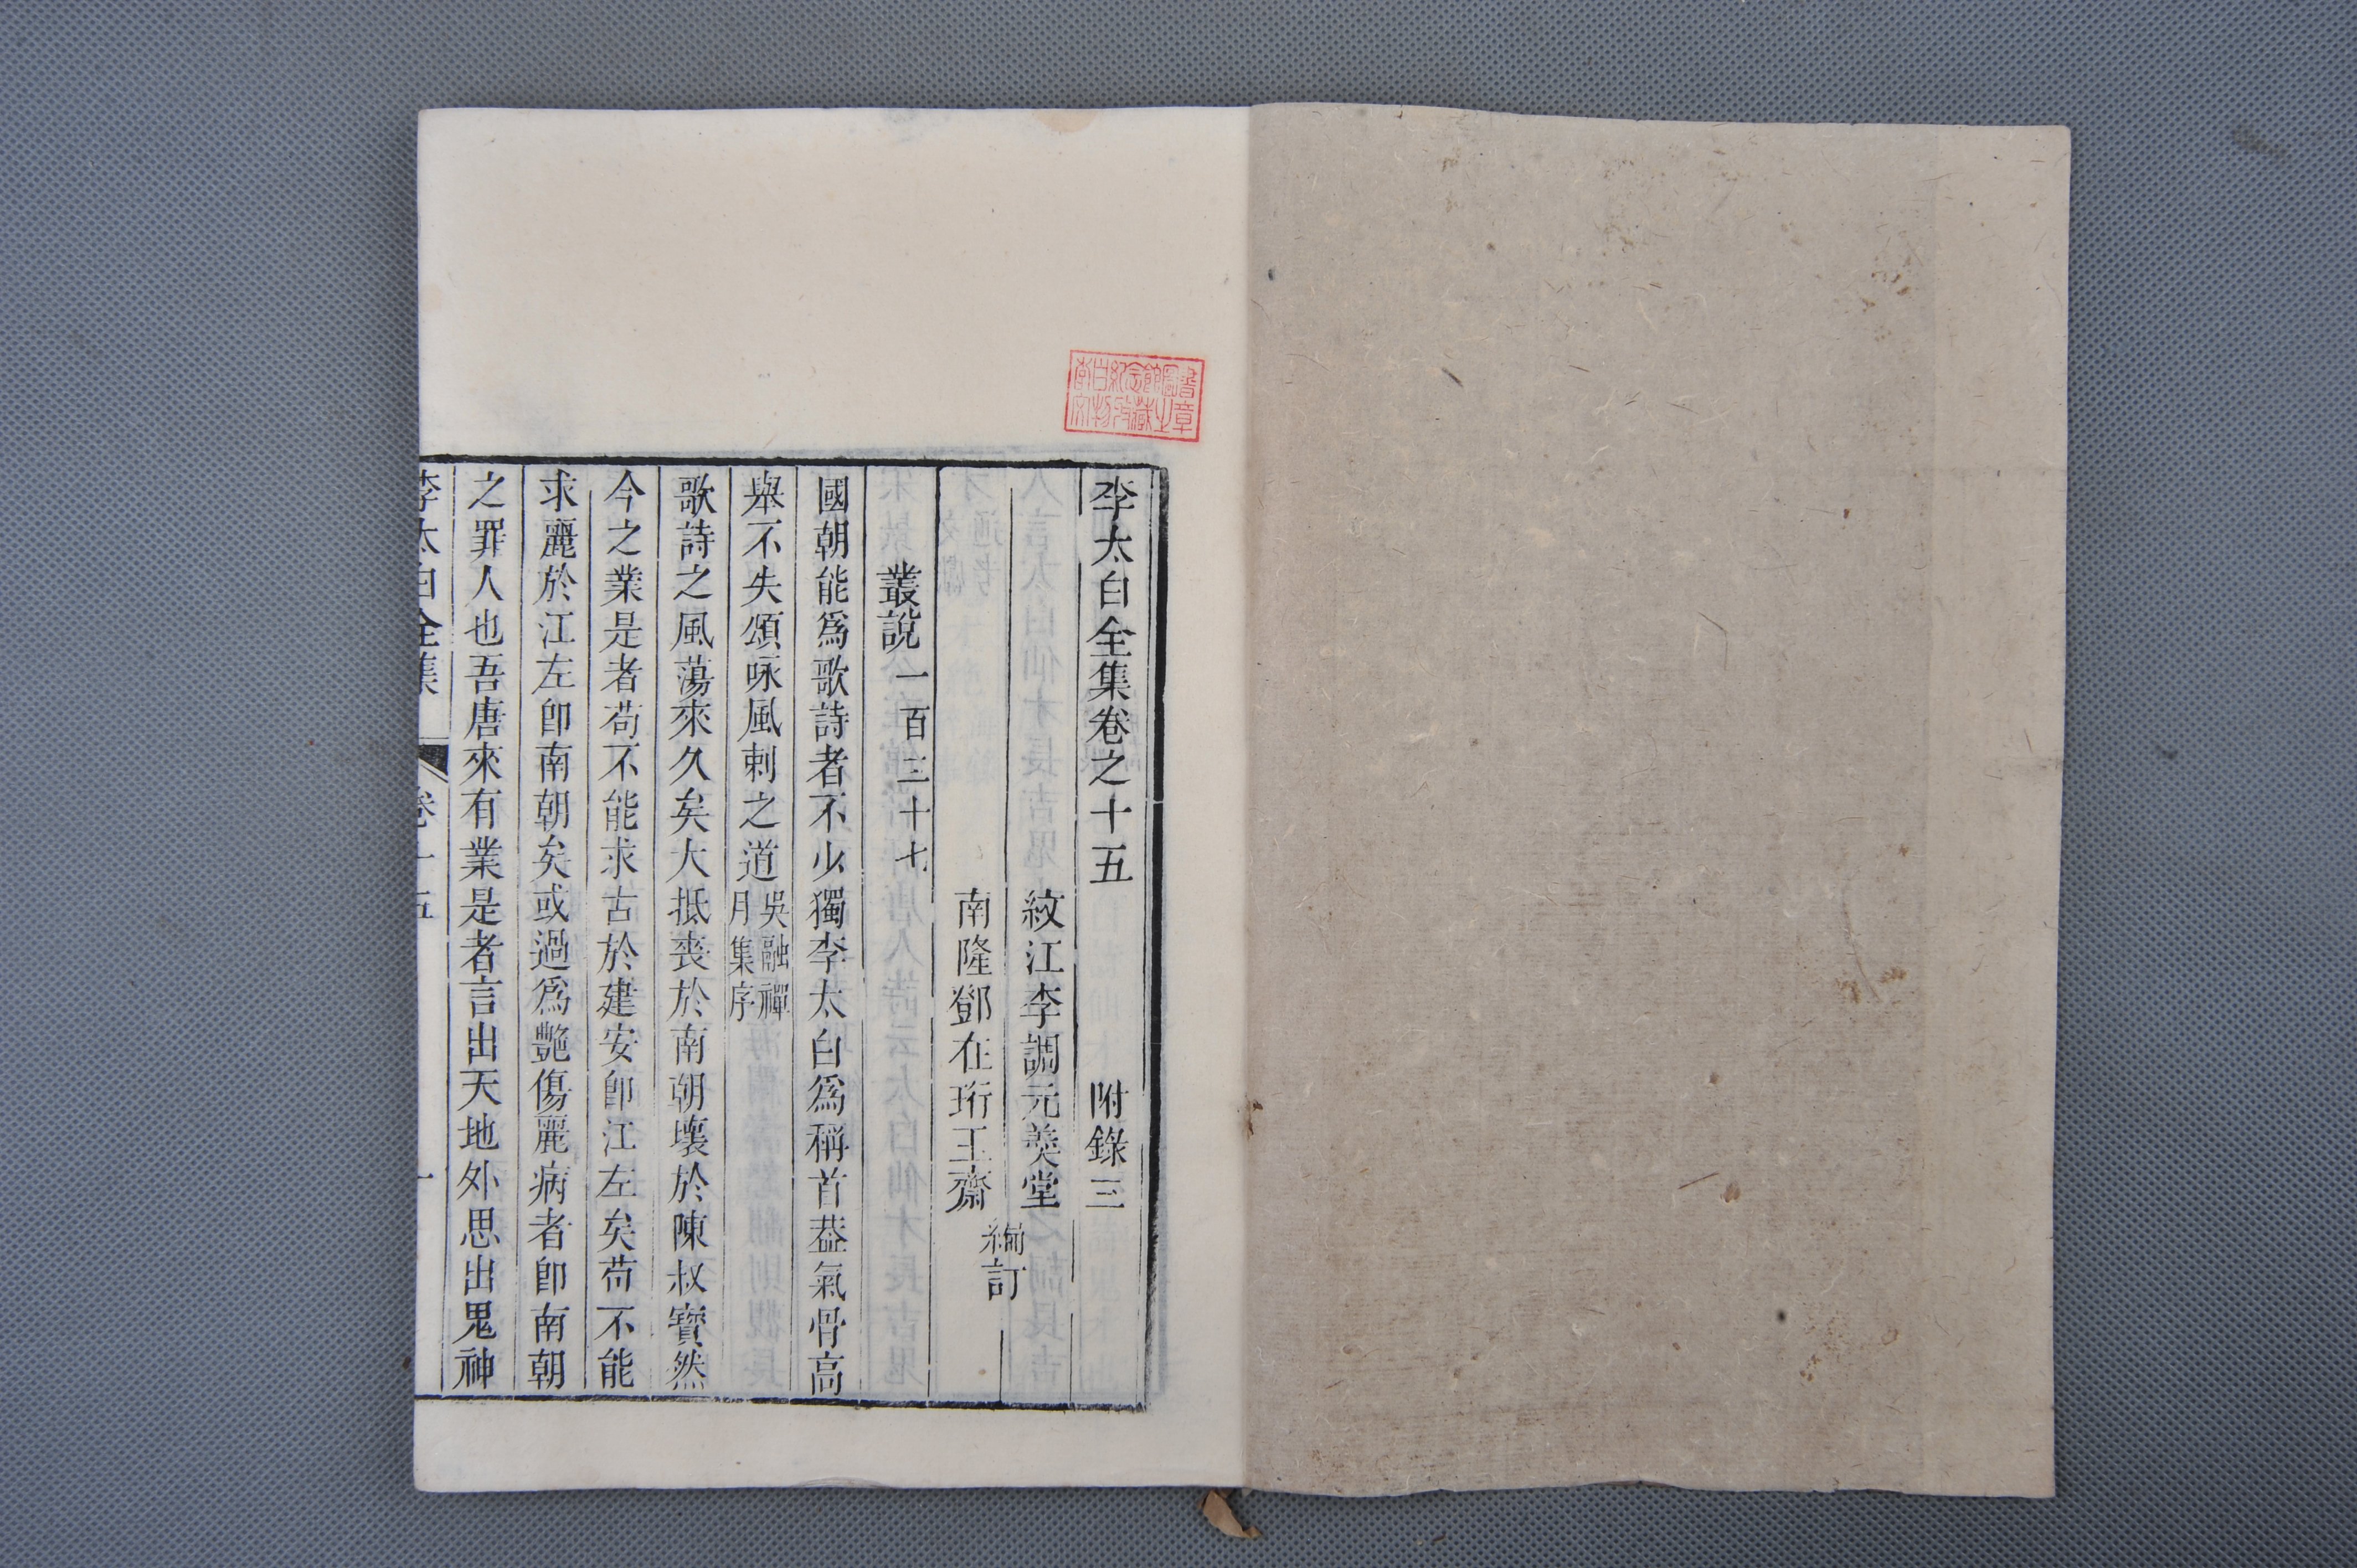 李白紀念館圖書
文物收藏之章
李太白全集卷之十五 附錄三
紋江李調元羹堂
南隆鄧在珩玉齋
編訂
叢說一百三十七
國朝能爲歌詩者不少獨李太白爲稱首葢氣骨高
舉不失頌咏風刺之道吳融禪月集序
歌詩之風蕩來久矣大抵喪於南朝壞於陳叔寶然
今之業是者苟不能求古於建安卽江左矣苟不能
求麗於江左卽南朝矣或過爲艷傷麗病者卽南朝
之罪人也吾唐來有業是者言出天地外思出鬼神
李太白全集 卷十五 一